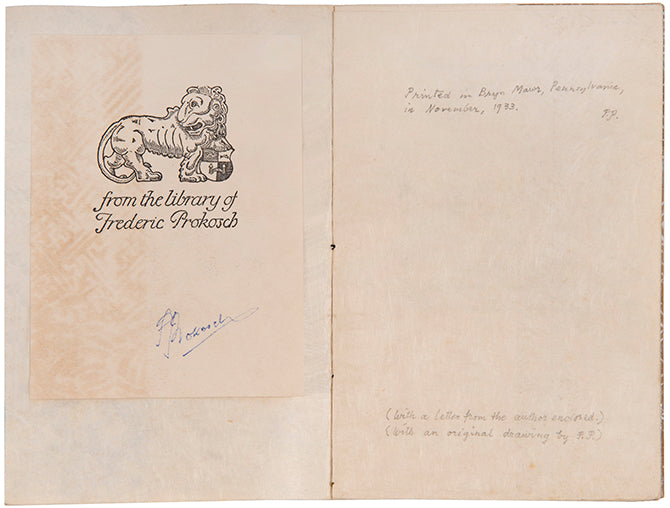 from the library of
Frederic Prokosch
F Prokosch
Printed in Bryn Mawr, Pennsylvania,
in November, 1933.
F.P.
(With a letter from the author enclosed.)
(With an original drawing by F.P.)